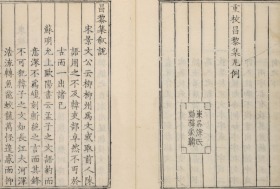 重校昌黎集凡例
東吳徐氏
刻梓家塾
昌黎集叙說
宋景文公云柳柳州爲文或取前人陳
語用之不及韓吏部卓然不丐於
古而一出諸己
蘇明允上歐陽書云孟子之文語約而
意深不爲巉刻斬絶之言而其鋒
不可犯韓子之文如長江大河渾
浩流轉魚黿蛟龍萬怪惶惑而抑